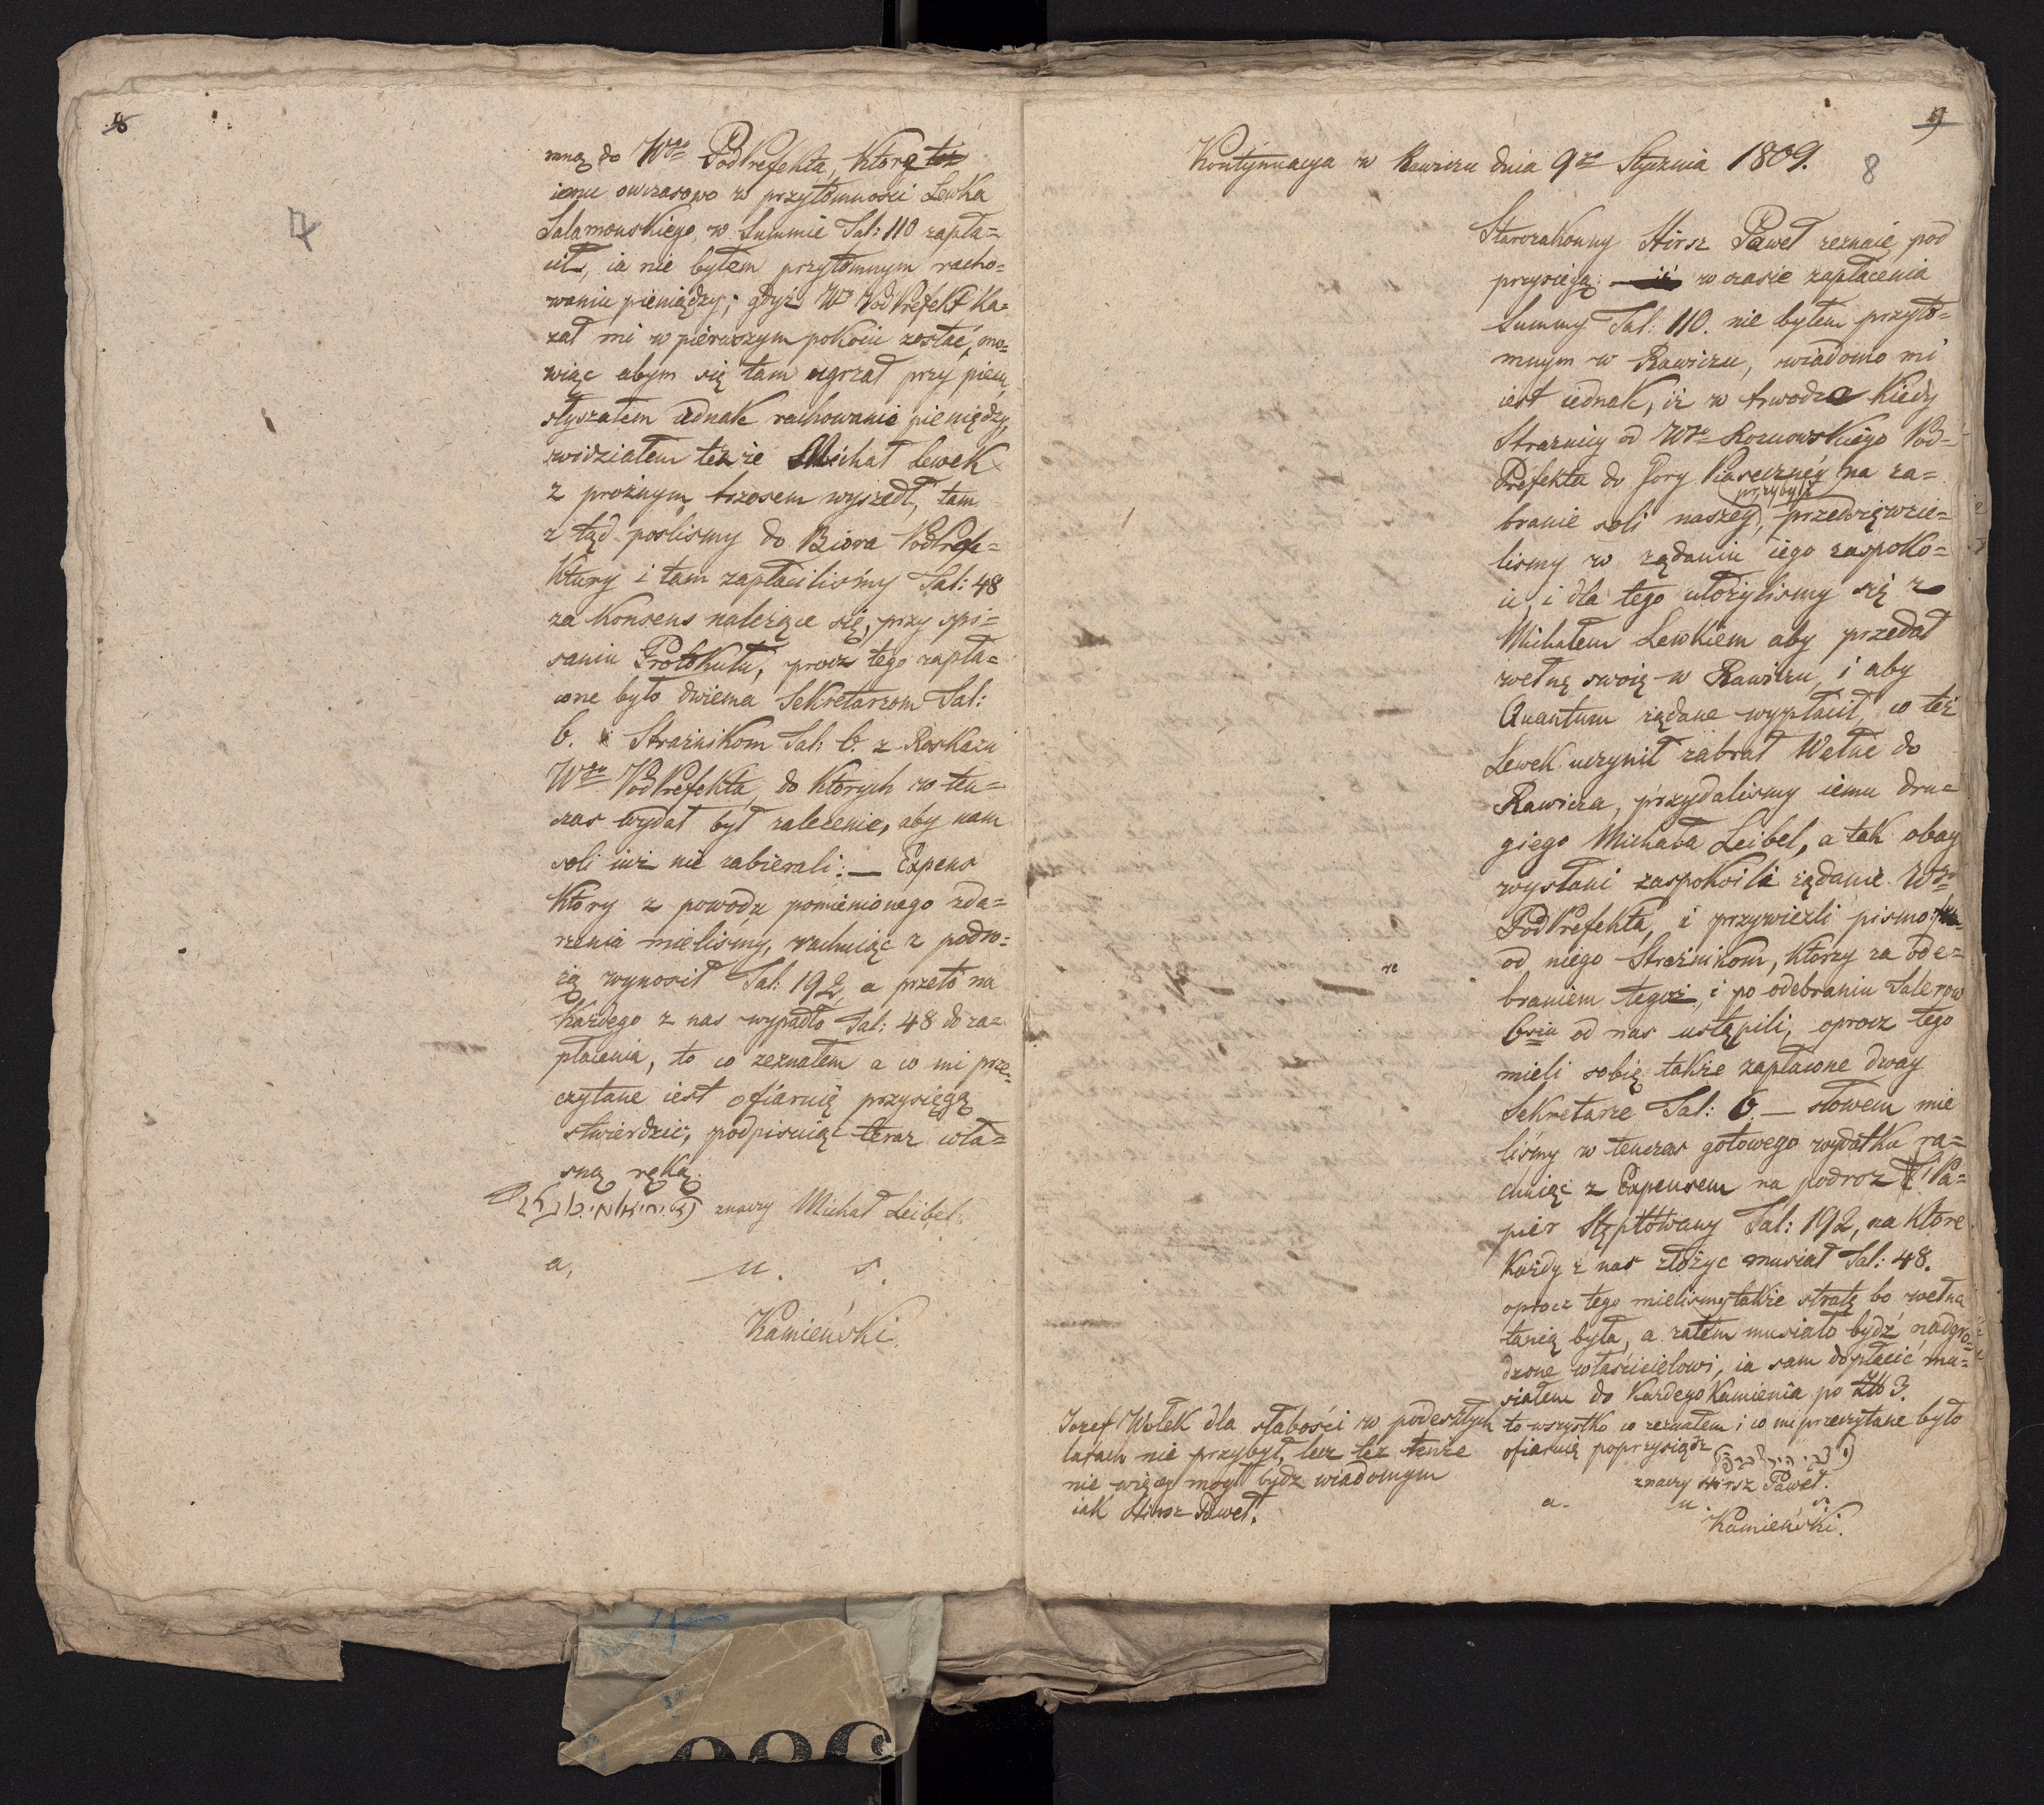 mną do Wgo PodPrefekta, którą też
iemu owczasowo w przytomności Lewka
Salamonskiego, w Summie Tal: 110 zapła=
cił, ia nie byłem przytomnym racho=
waniu pieniędzy; gdyż W. PodPrefekt ka=
zał mi w pierwszym pokoiu zostać, mo=
wiąc abym się tam ugrzał przy piecu,
słyszałem iednak rachowanie pieniędzy,
widziałem też że Michał Lewek
z prożnym trzosem wyszedł, tam
z tąd poslismy do Biora PodPrefe=
ktury i tam zapłacilismy Tal: 48
za Konsens należące się, przy spi=
saniu Protokułu, procz tego zapła=
cone było dwiema Sekretarzom Tal:
6. i Strażnikom Tal: 6. z Roskazu
Wgo PodPrefekta, do ktorych w ten=
czas wydał był zalecenie, aby nam
soli iuż nie zabierali: — Expens
Który z powodu pomienionego zda=
rzenia mielismy, rachuiąc z podro=
żą wynosił Tal: 192, a przeto na
Każdego z nas wypadło Tal: 48 do za=
płacenia, to co zeznałem a co mi prze=
czytane iest ofiaruię przysięgą
stwierdzić, podpisuiąc teraz wła=
sną ręką.
znaczy Michał Leibel.
a, u. s.
Kamieński
7
9
8
Kontynuacya w Rawiczu dnia 9go Stycznia 1809.
Starozakonny Hirsz Paweł zeznaie pod
przysięgą: — iż w czasie zapłacenia
Summy Tal: 110. nie byłem przyto=
mnym w Rawiczu, wiadomo mi
iest iednak, iż w trwodze kiedy
Strażnicy od Wgo Rosnowskiego Pod=
Prefekta do Gory Piaseczney na za=
przybyli
branie soli naszey, przedsięwzie=
lismy w żądaniu iego zaspoko=
ić, i dla tego ułożylismy się z
Michałem Lewkiem aby przedał
wełnę swoią w Rawiczu, i aby
Quantum żądane wypłacił, co też
Lewek uczynił zabrał Wełnę do
Rawicza, przydalismy iemu dru=
giego Michała Leibel, a tak obay
wysłani zaspokoili żądanie Wgo
PodPrefekta, i przywiezli pismo
od niego Strażnikom, ktorzy za ode=
braniem tegoż, i po odebraniu Talerow
6ciu od nas ustąpili, oprocz tego
mieli sobię także zapłacone dway
Sekretarze Tal: 6. — słowem mie
liśmy w tenczas gotowego wydatku ra=
chuiąc z Expensem na podroz i Pa=
pier Stęplowany Tal: 192, na Które
Każdy z nas złożyc musiał Tal: 48.
oprocz tego mielismy także stratę bo wełna
tanią była, a zatem musiało bydź nadgro=
dzone właścicielowi, ia sam dopłacić mu=
siałem do Każdego Kamienia po Złł 3.
to wszystko co zeznałem i co mi przeczytane było
ofiaruię poprzysiądz
znaczy Hirsz Paweł.
a. u. s.
Kamieński.
Jozef Wolek dla słabości w podeszłych
latach nie przybył, lecz też tenże
nie więcey mogł bydz wiadomym
iak Hirsz Paweł.